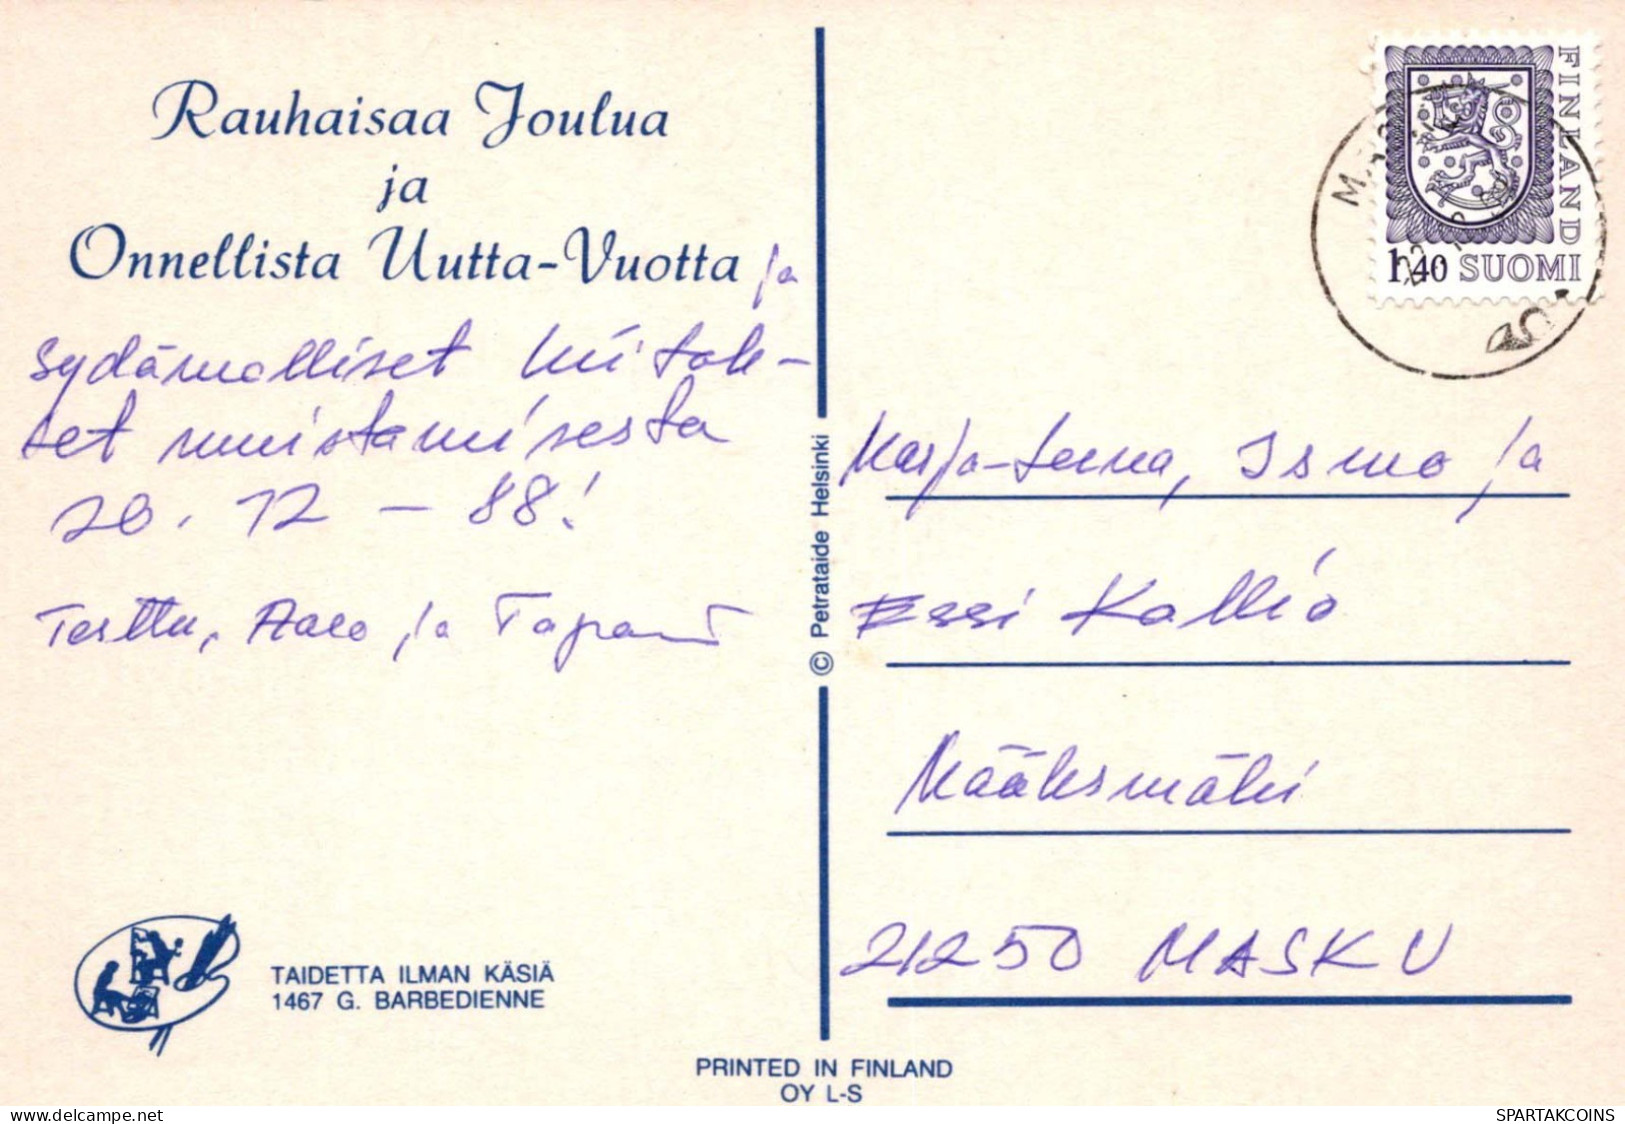 Rauhaisaa Joulua
ja
Onnellista Uutta-Vuotta ja
sydämelliset kiitok-
set muistamisesta
20. 12 - 88!
Terttu, Aaro ja Tapani
TAIDETTA ILMAN KÄSIÄ
1467 G. BARBEDIENNE
© Petrataide Helsinki
PRINTED IN FINLAND
OY L-S
FINLAND
1,40 SUOMI
Marja-Leena, Ismo ja
Essi Kallio
Kääksmäki
21250 MASKU
delcampe.net
SPARTAKCOINS